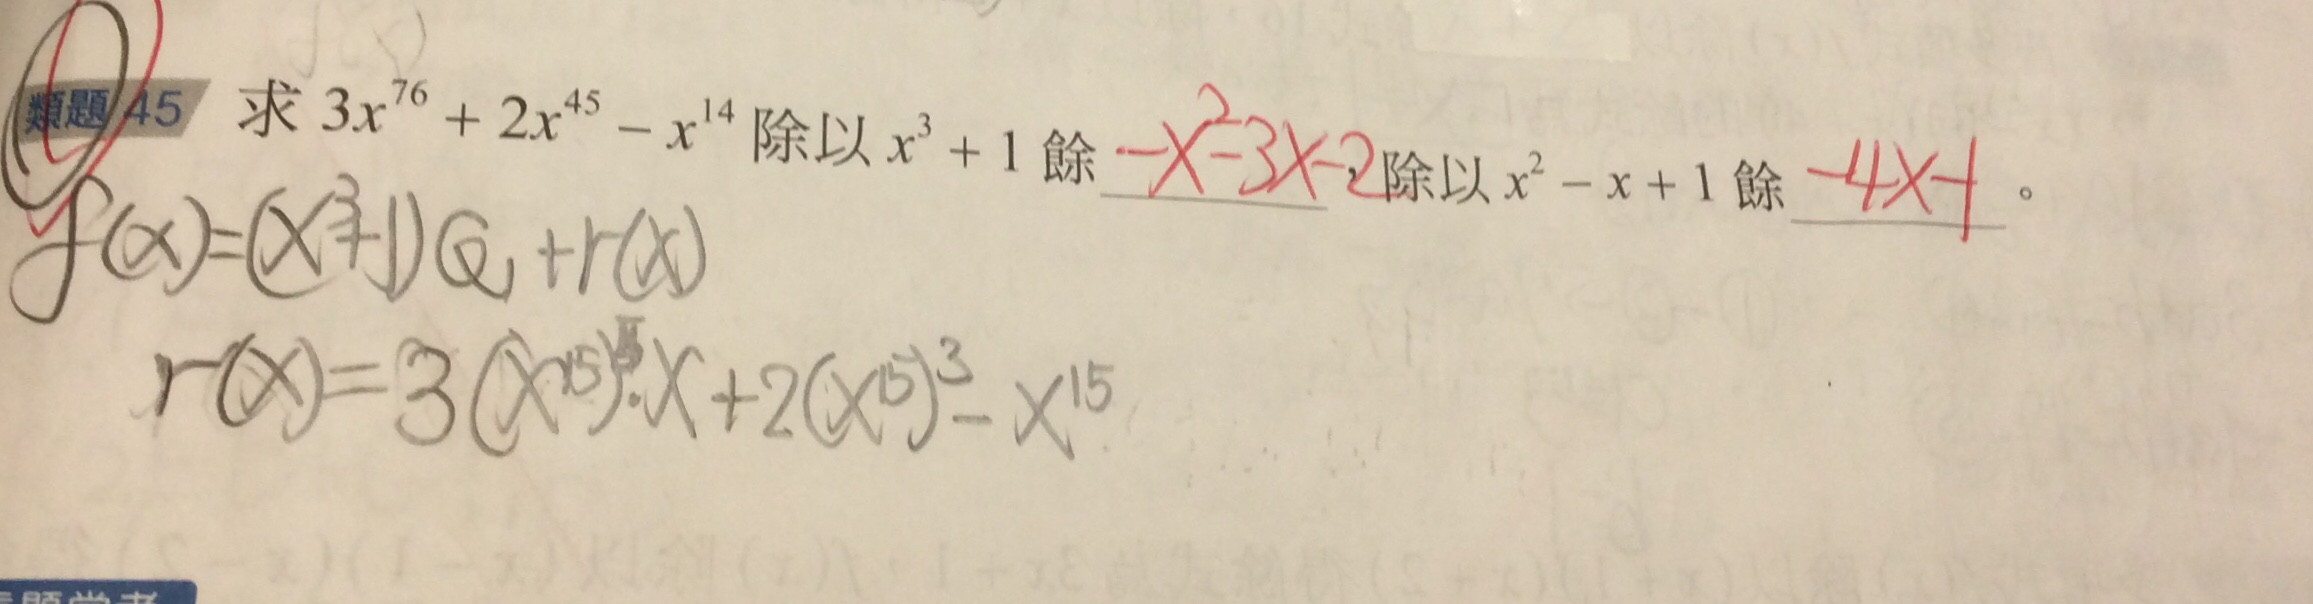 類題 45 求 3x⁷⁶ + 2x⁴⁵ − x¹⁴ 除以 x³ + 1 餘 -x²-3x-2, 除以 x² − x + 1 餘 -4x-1 。
f(x)=(x³+1)Q+r(x)
r(x)=3(x¹⁵)⁵·x+2(x¹⁵)³-x¹⁵